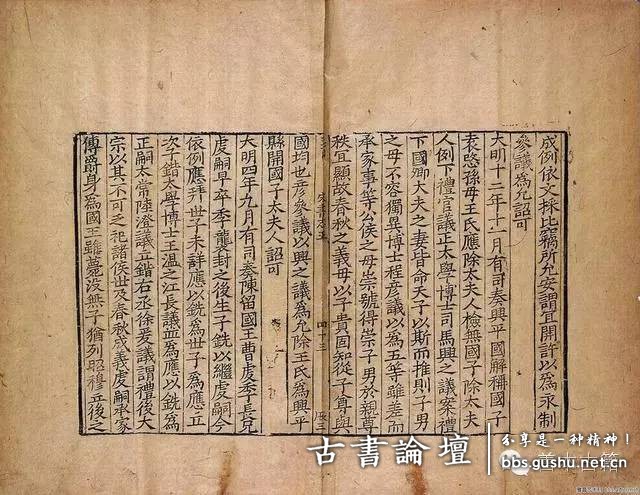 成例依文採比竊所允安謂宜開許以為永制
參議為允詔可
大明十二年十一月有司奏興平國解稱國子
袁愍孫母王氏應除太夫人檢無國子除太夫
人例下禮官議正太學博士司馬興之議案禮
下國卿大夫之妻皆命夫子以斯而推則子男
之母不容獨異博士程彥議以為五等雖差而
承家事等公侯之母崇號得崇子男於親尊
秩宜顯故春秋之義母以子貴固知從子尊與
四十三
國均也彥參議以興之議為允除王氏為興平
縣開國子太夫人詔可
大明四年九月有司奏陳留國王曹虔季長兄
虔嗣早卒季襲封之後生子銑以繼虔嗣今
依例應拜世子未詳應以銑為世子為應立
次子鍇太學博士王溫之江長議並為應以銑為
正嗣太常陸澄議立鍇右丞徐爰議謂禮後大
宗以其不可乏祀諸侯世及春秋成義虔嗣承家
傳爵身為國王雖薨沒無子猶列昭穆立後之
古書論壇
分享是一种精神！
bbs.gushu.net.cn
善本古籍